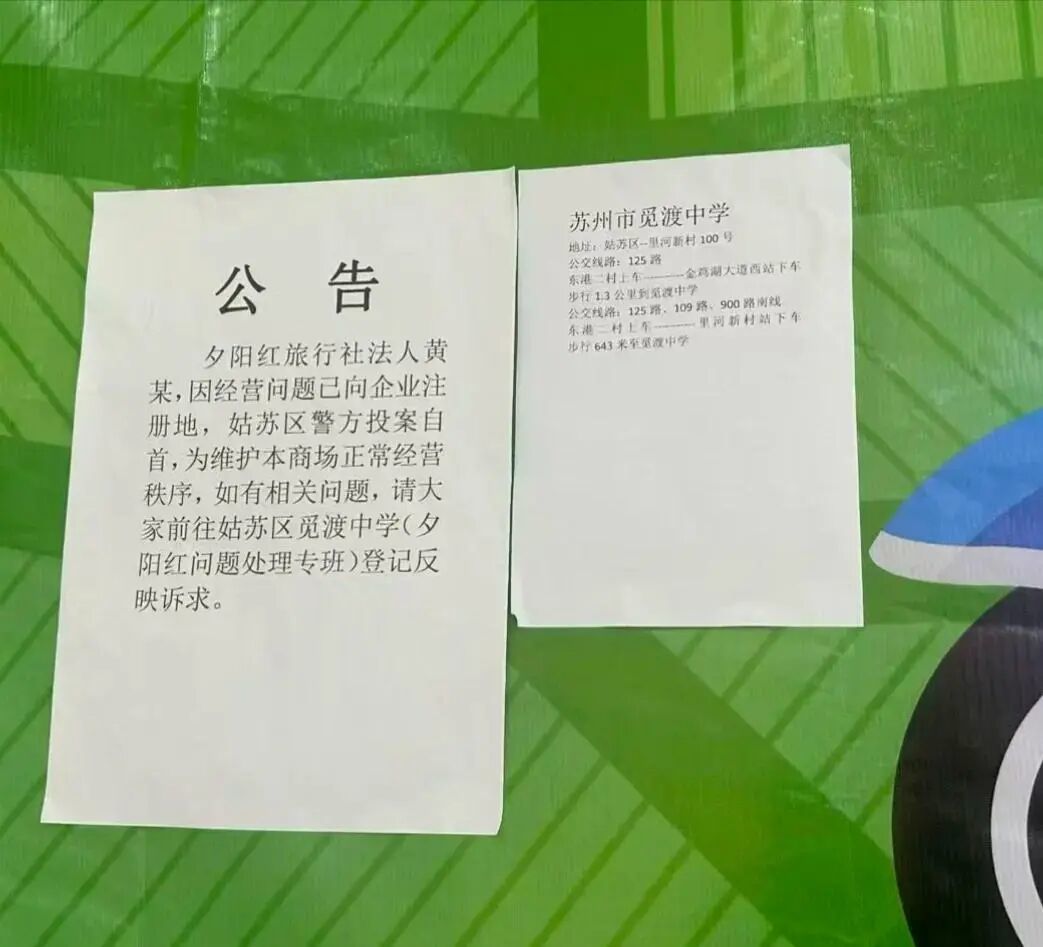 公 告
夕阳红旅行社法人黄
某,因经营问题已向企业注
册地，姑苏区警方投案自
首,为维护本商场正常经营
秩序，如有相关问题，请大
家前往姑苏区觅渡中学(夕
阳红问题处理专班)登记反
映诉求。
苏州市觅渡中学
地址：姑苏区--里河新村 100 号
公交线路：125 路
东港二村上车----------金鸡湖大道西站下车
步行 1.3 公里到觅渡中学
公交线路：125 路、109 路、900 路南线
东港二村上车----------里河新村站下车
步行 643 米至觅渡中学